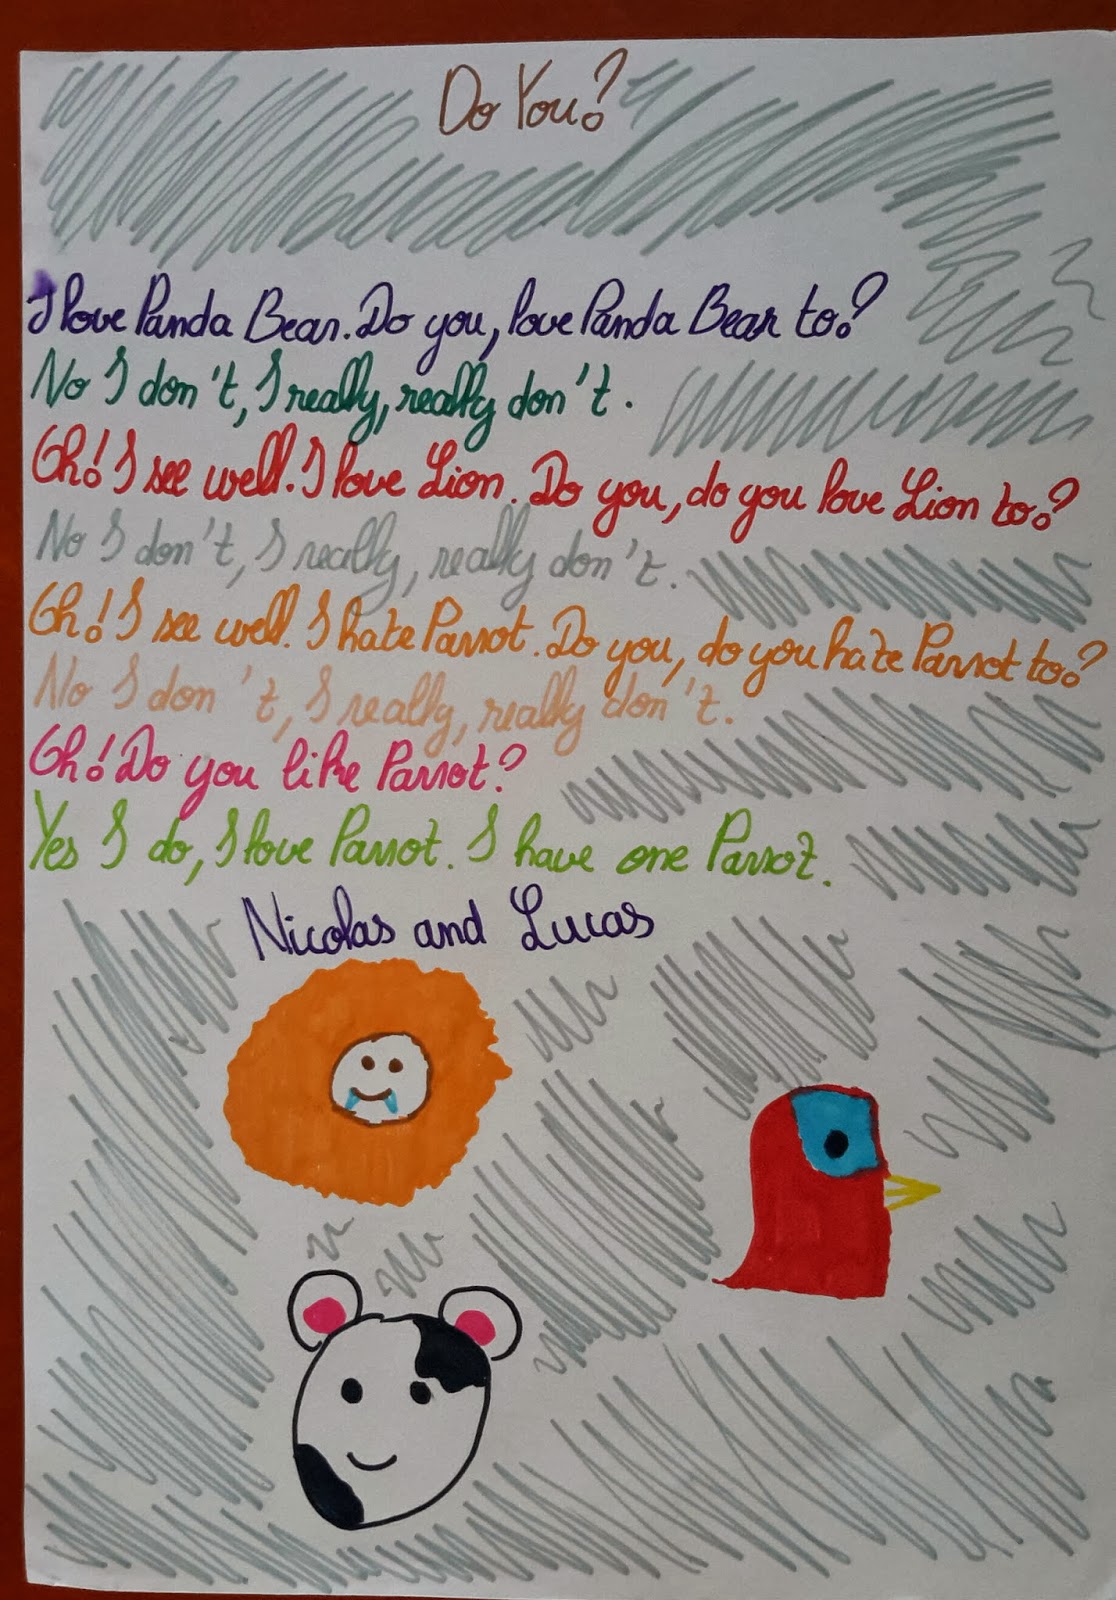 Do You?
I love Panda Bear. Do you, love Panda Bear to?
No I don't, I really, really don't.
Oh! I see well. I love Lion. Do you, do you love Lion to?
No I don't, I really, really don't.
Oh! I see well. I hate Parrot. Do you, do you hate Parrot to?
No I don't, I really, really don't.
Oh! Do you like Parrot?
Yes I do, I love Parrot. I have one Parrot.
Nicolas and Lucas